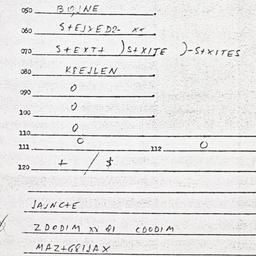 050 BOJNE
060 S+EJXED2- x+
070 S+EXT+ )S+XITE )-S+XITES
080 KSEJLEN
090 0
100 0
110 0
111 0 112 0
120 + / $
JAJNC+E
ZDODIM xx GI CDODIM
MAZ+G8IJAX